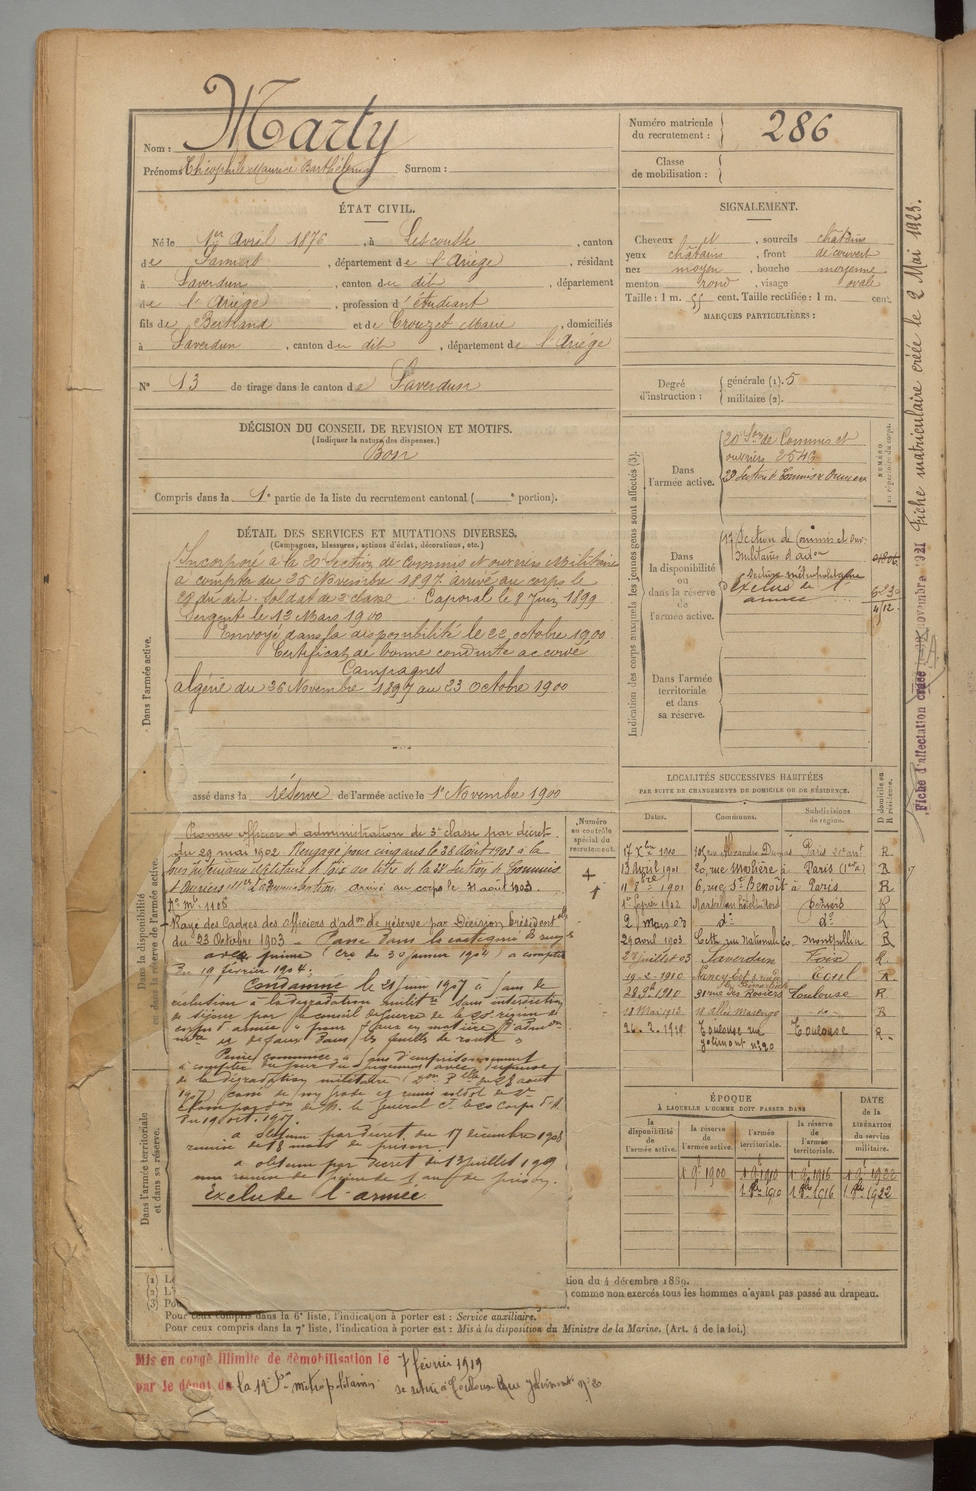 Nom : Marty
Prénoms Théophile Maurice Barthélemy Surnom :
Numéro matricule du recrutement : 286
Classe de mobilisation :
ÉTAT CIVIL.
Né le 1er Avril 1876, à Lescousse, canton
de Pamiers, département de l'Ariège, résidant
à Saverdun, canton du dit, département
de l'Ariège, profession d'étudiant
fils de Bertrand et de Crouzet Marie, domiciliés
à Saverdun, canton du dit, département de l'Ariège
N° 13 de tirage dans le canton de Saverdun
SIGNALEMENT.
Cheveux et, sourcils châtains
yeux châtains, front découvert
nez moyen, bouche moyenne
menton rond, visage ovale
Taille : 1 m. 55 cent. Taille rectifiée : 1 m. cent.
MARQUES PARTICULIÈRES :
Degré d'instruction : générale (1). 5
militaire (2).
DÉCISION DU CONSEIL DE REVISION ET MOTIFS.
(Indiquer la nature des dispenses.)
Bon
Compris dans la 1e partie de la liste du recrutement cantonal ( e portion).
DÉTAIL DES SERVICES ET MUTATIONS DIVERSES.
(Campagnes, blessures, actions d'éclat, décorations, etc.)
Dans l'armée active.
Incorporé à la 20e Section de Commis et ouvriers Militaires
à compter du 25 Novembre 1897 arrivé au corps le
du dit. Soldat de 2e classe. Caporal le 8 Juin 1899
Sergent le 13 Mars 1900
Envoyé dans la disponibilité le 22 octobre 1900
Certificat de bonne conduite accordé
Campagnes
algérie du 26 Novembre 1897 au 23 Octobre 1900
assé dans la réserve de l'armée active le 1er Novembre 1900
Dans la disponibilité
ou dans la réserve de l'armée active.
Promu officier d'administration de 3e classe par décret
du 29 mai 1902 Rengagé pour cinq ans le 28 Août 1903 à la
arrivé au corps le 31 août 1903.
N° mle 1118
Rayé des Cadres des officiers d'adon de réserve par Décision Présidentlle
du 23 Octobre 1903 - Passé dans la catégorie
avec prime (Cre du 30 janvier 1904) à compter
du 19 février 1904.
Condamné le 21 juin 1907 à 5 ans de
réclusion à la dégradation militre sans interdiction
de séjour par le conseil de guerre de la 20e région de
corps d'armée " pour faux en matière d'admon
mre et de faux dans les feuilles de route "
Peine commuée à 5 ans d'emprisonnement
à compter du jour du jugement avec dispense
de la dégradation militaire
a obtenu par décret du 17 décembre 1908
remise de 18 mois de prison.
a obtenu par décret du 13 juillet 1909
une remise de peine de 1 an de prison.
Exclu de l'armée.
Dans l'armée territoriale et dans sa réserve.
Numéro au contrôle spécial du recrutement.
Indication des corps auxquels les jeunes gens sont affectés (3).
Dans l'armée active.
20e Son de Commis et
ouvriers 2543
Dans la disponibilité ou dans la réserve de l'armée active.
17 Section de Commis et ouv.
militaires d'adon
Section métropolitaine
exclus de l'
armée
Dans l'armée territoriale et dans sa réserve.
NUMÉRO au répertoire du corps.
4/12
LOCALITÉS SUCCESSIVES HABITÉES
PAR SUITE DE CHANGEMENTS DE DOMICILE OU DE RÉSIDENCE.
Dates. Communes. Subdivisions de région. D domicile ou R résidence.
17 Xbre 1900 105 rue Alexandre Dumas Paris 20e arrt R
13 Avril 1901 20, rue Molière à Paris (1er) R
11 8bre 1901 6, rue St Benoît à Paris R
1er février 1902 Poitiers R
2 mars 03 do do R
29 avril 1903 Cette, rue Nationale 20 Montpellier R
28 juillet 03 Saverdun Foix R.
19-2-1910 Nancy Toul R
28 9bre 1910 31 rue des Rosiers Toulouse R
11 Mai 1913 R
26.2.1919 Toulouse rue Jolimont n° 20 Toulouse R.
ÉPOQUE
À LAQUELLE L'HOMME DOIT PASSER DANS
la disponibilité de l'armée active. la réserve de l'armée active. l'armée territoriale. la réserve de l'armée territoriale.
DATE de la LIBÉRATION du service militaire.
1 9bre 1900 1 9 1910 1 9 1916 1 9 1922
1 8bre 1910 1 8bre 1916 1 8bre 1922
(1) Le
(2) L'i
(3) Pou
tion du 4 décembre 1889.
comme non exercés tous les hommes n'ayant pas passé au drapeau.
Pour ceux compris dans la 6e liste, l'indication à porter est : Service auxiliaire.
Pour ceux compris dans la 7e liste, l'indication à porter est : Mis à la disposition du Ministre de la Marine. (Art. 4 de la loi.)
Mis en congé illimité de démobilisation le 7 février 1919
par le dépôt de la 12e Son métropolitain se retire à Toulouse Rue Jolimont n° 20
Fiche d'affectation créée novembre 1921 Fiche matriculaire créée le 2 Mai 1923.